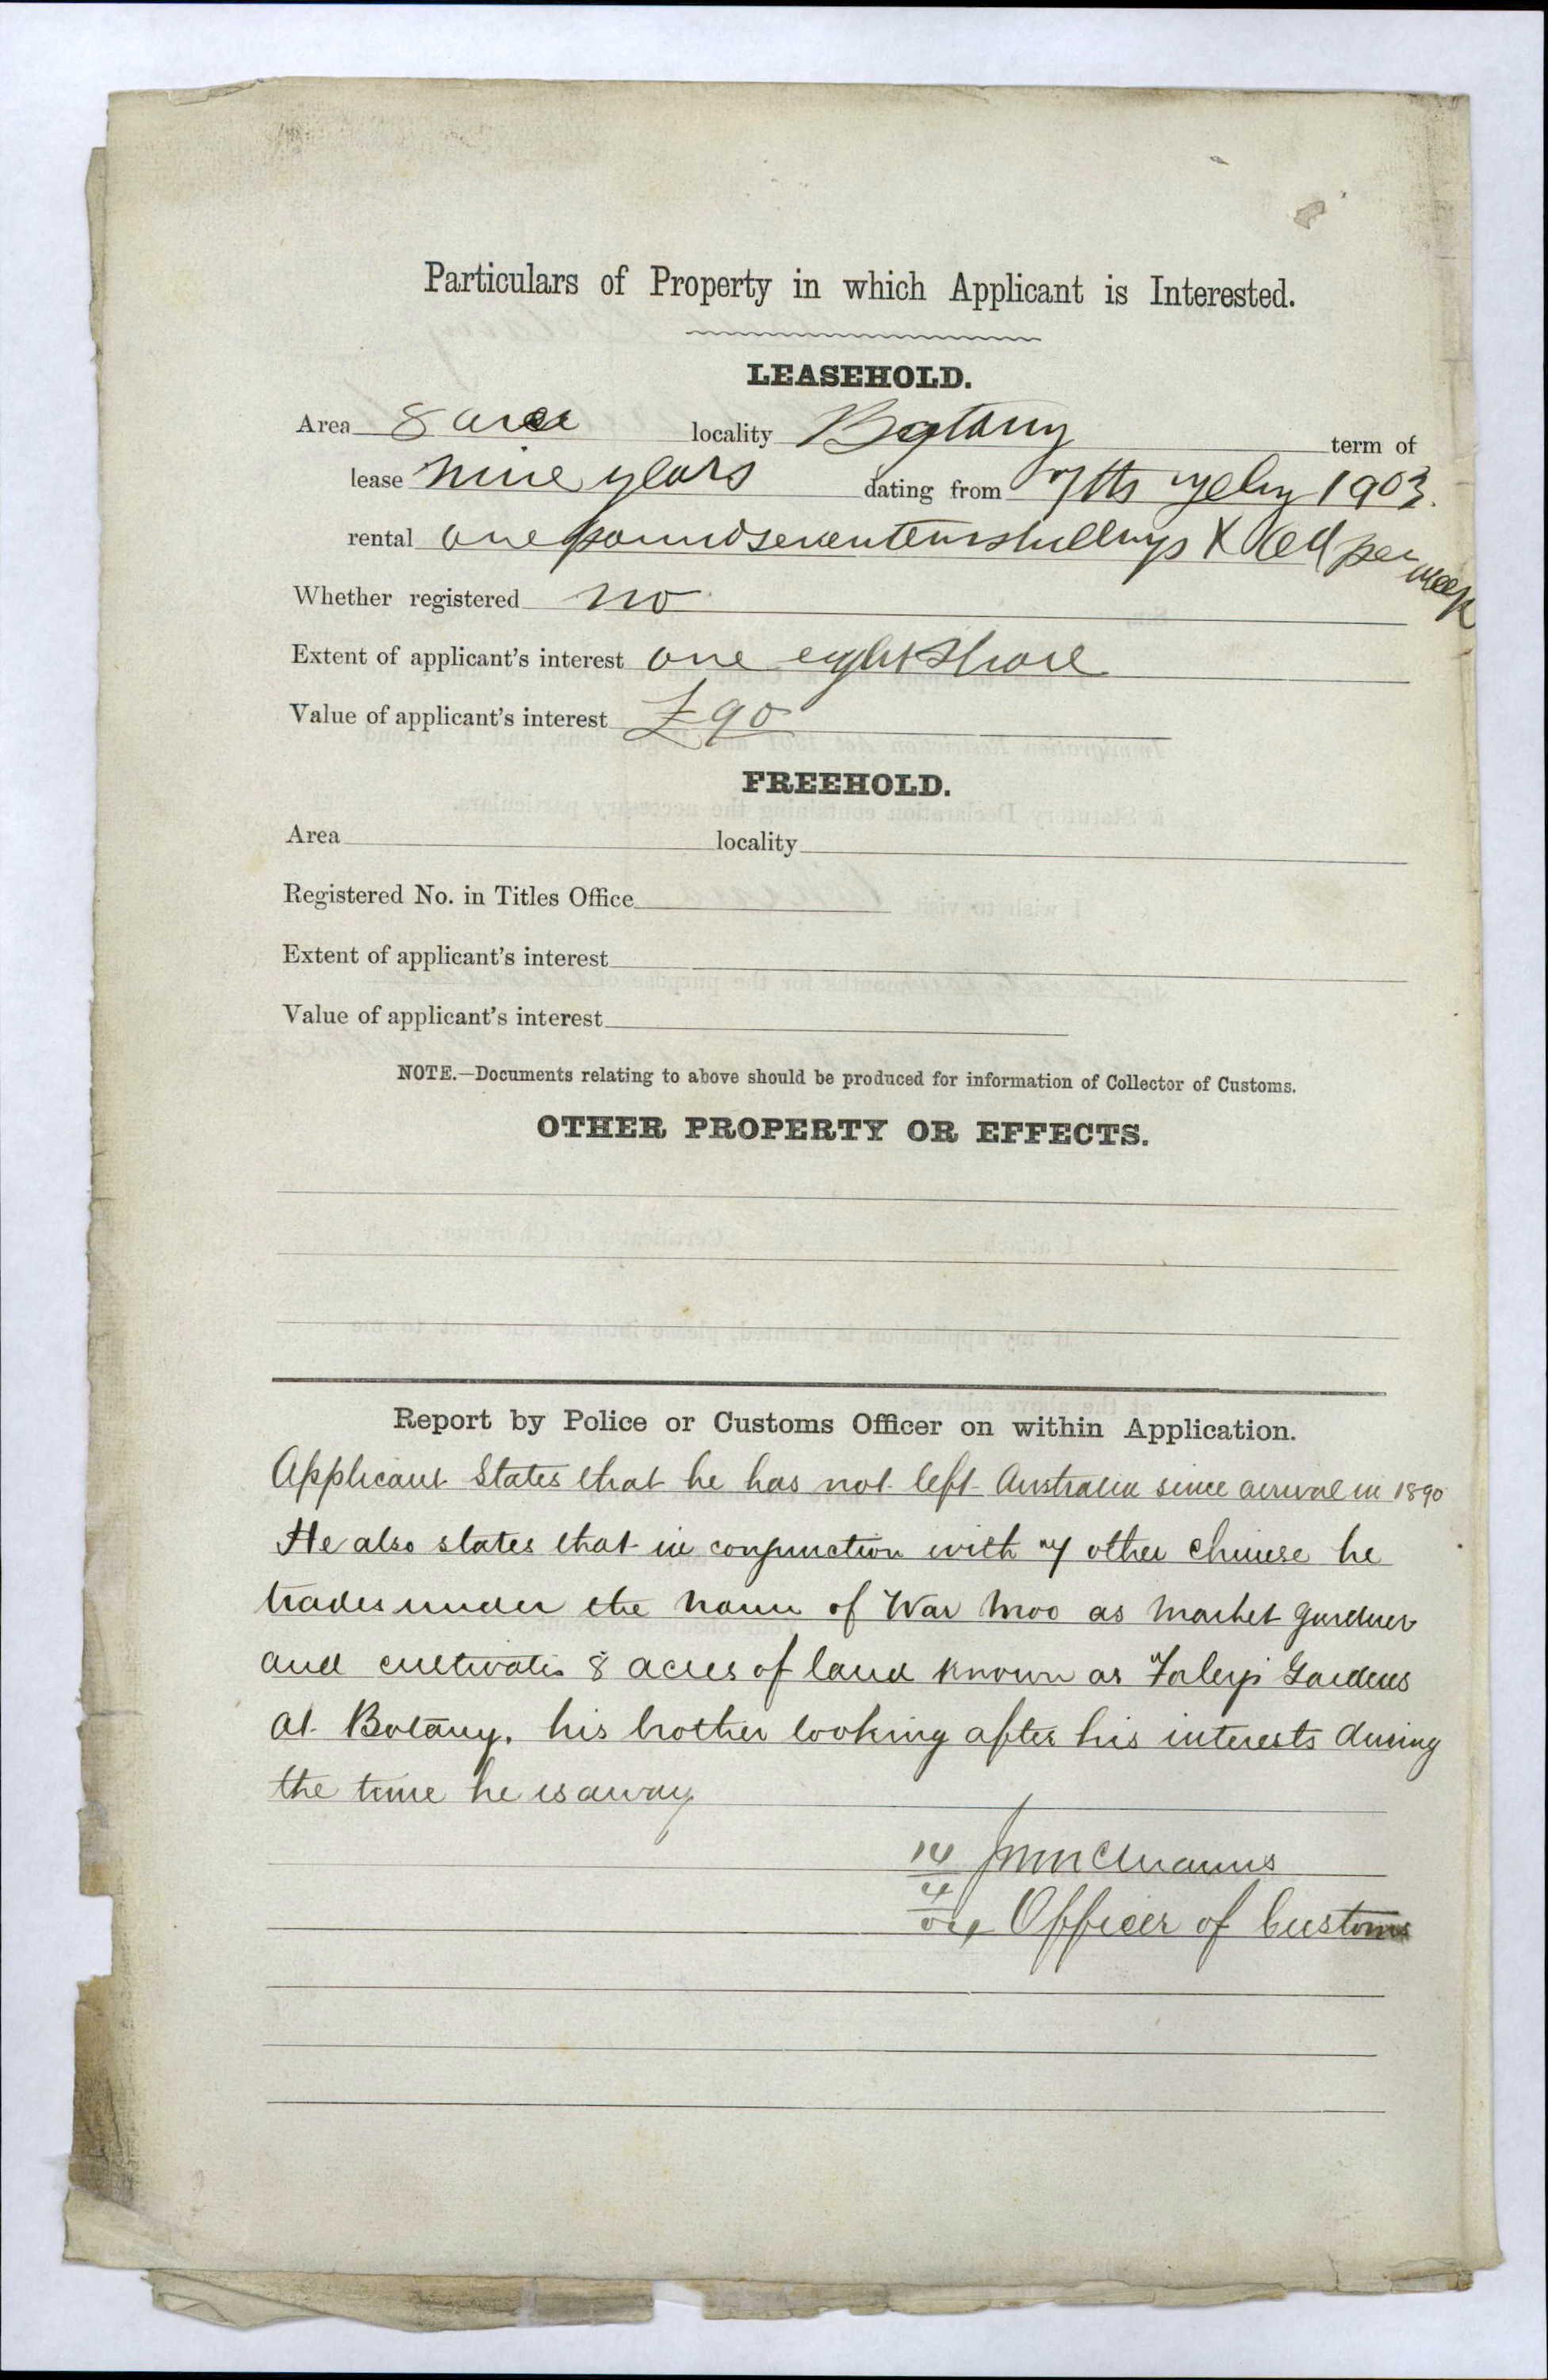 Particulars of Property in which Applicant is Interested.
LEASEHOLD.
Area 8 acre locality Botany term of
lease nine years dating from 7th Feby 1903.
rental one pound seventeen shillings & per week
Whether registered no
Extent of applicant's interest one eight share
Value of applicant's interest £90
FREEHOLD.
Area locality
Registered No. in Titles Office
Extent of applicant's interest
Value of applicant's interest
NOTE.—Documents relating to above should be produced for information of Collector of Customs.
OTHER PROPERTY OR EFFECTS.
Report by Police or Customs Officer on within Application.
Applicant States that he has not left Australia since arrival in 1890
He also states that in conjunction with 7 other Chinese he
trades under the name of War Moo as market gardener
and cultivates 8 acres of land known as Foleys Gardens
at Botany. his brother looking after his interests during
the time he is away
14 J McManus
4
04 Officer of Customs